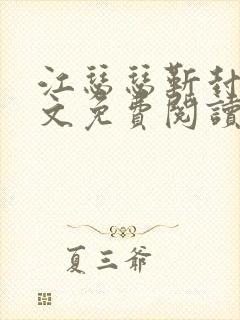 江瑟瑟靳封
文免費閱讀
夏三爺